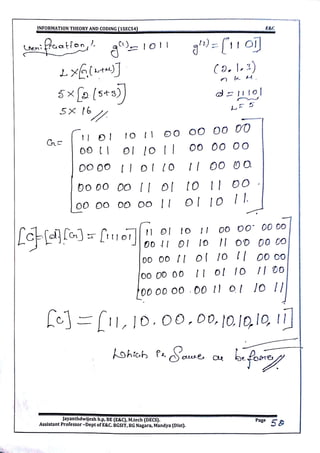 INFORMATION THEORY AND CODING (15EC54) E&C
Verification: g(1) = 1011 g(2) = [1101]
L×[n(L+M)] (2,1,3)
n k M
5×[2(5+3)] d = 11101
5×16 L=5
G=
11 01 10 11 00 00 00 00
00 11 01 10 11 00 00 00
00 00 11 01 10 11 00 00
00 00 00 11 01 10 11 00
00 00 00 00 11 01 10 11
[c]=[d][G] = [11101]
11 01 10 11 00 00 00 00
00 11 01 10 11 00 00 00
00 00 11 01 10 11 00 00
00 00 00 11 01 10 11 00
00 00 00 00 11 01 10 11
[c] = [11, 10, 00, 00, 10, 10, 10, 11]
which is same as before
Jayanthdwijesh h.p, BE (E&C), M.tech (DECS).
Assistant Professor –Dept of E&C. BGSIT, BG Nagara, Mandya (Dist).
Page 58